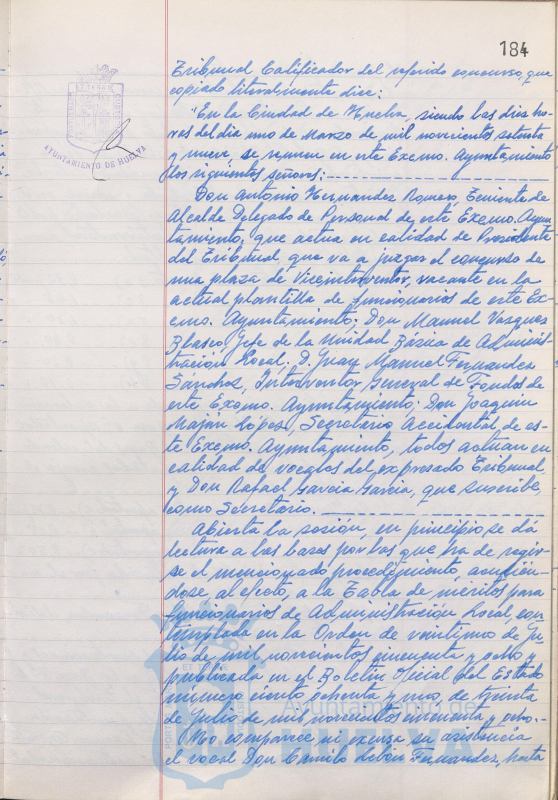 184
AYUNTAMIENTO DE HUELVA
Tribunal Calificador del referido concurso, que
copiado literalmente dice:
"En la Ciudad de Huelva, siendo las diez ho-
ras del día uno de Marzo de mil novecientos setenta
y nueve, se reunen en este Excmo. Ayuntamiento
los siguientes señores:
Don Antonio Hernandez Romero, Teniente de
Alcalde Delegado de Personal de este Excmo. Ayun-
tamiento, que actua en calidad de Presidente
del Tribunal que va a juzgar el concurso de
una plaza de Viceinterventor, vacante en la
actual plantilla de funcionarios de este Ex-
cmo. Ayuntamiento; Don Manuel Vazquez
Blasco, Jefe de la Unidad Básica de Adminis-
tración Local. D. Juan Manuel Fernandez
Sánchez, Interventor General de Fondos de
este Excmo. Ayuntamiento; Don Joaquin
López, Secretario Accidental de es-
te Excmo. Ayuntamiento, todos actuan en
calidad de vocales del expresado Tribunal
y Don Rafael Garcia Garcia, que suscribe,
como Secretario.
Abierta la sesión, en principio se dá
lectura a las bases por las que ha de regir-
se el mencionado procedimiento, acudién-
dose, al efecto, a la Tabla de méritos para
funcionarios de Administración Local, con-
templada en la Orden de veintiuno de Ju-
lio de mil novecientos cincuenta y ocho y
publicada en el Boletín Oficial del Estado
número ciento ochenta y uno, de treinta
de Julio de mil novecientos cincuenta y ocho.-
No comparece ni excusa su asistencia
el vocal Don Camilo Fernandez, hasta
Ayuntamiento de
HUELVA